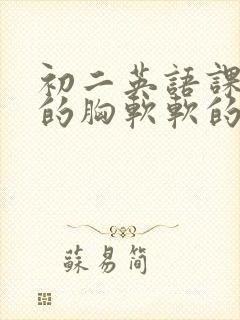 初二英語課
的胸軟軟的
蘇易簡